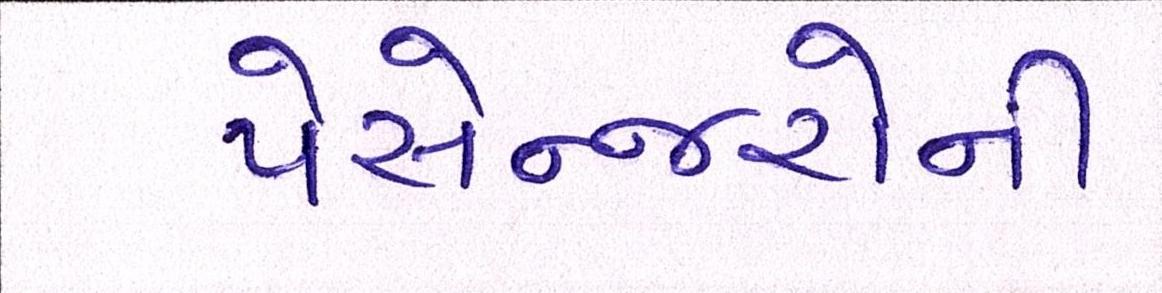 પેસેન્જરોની